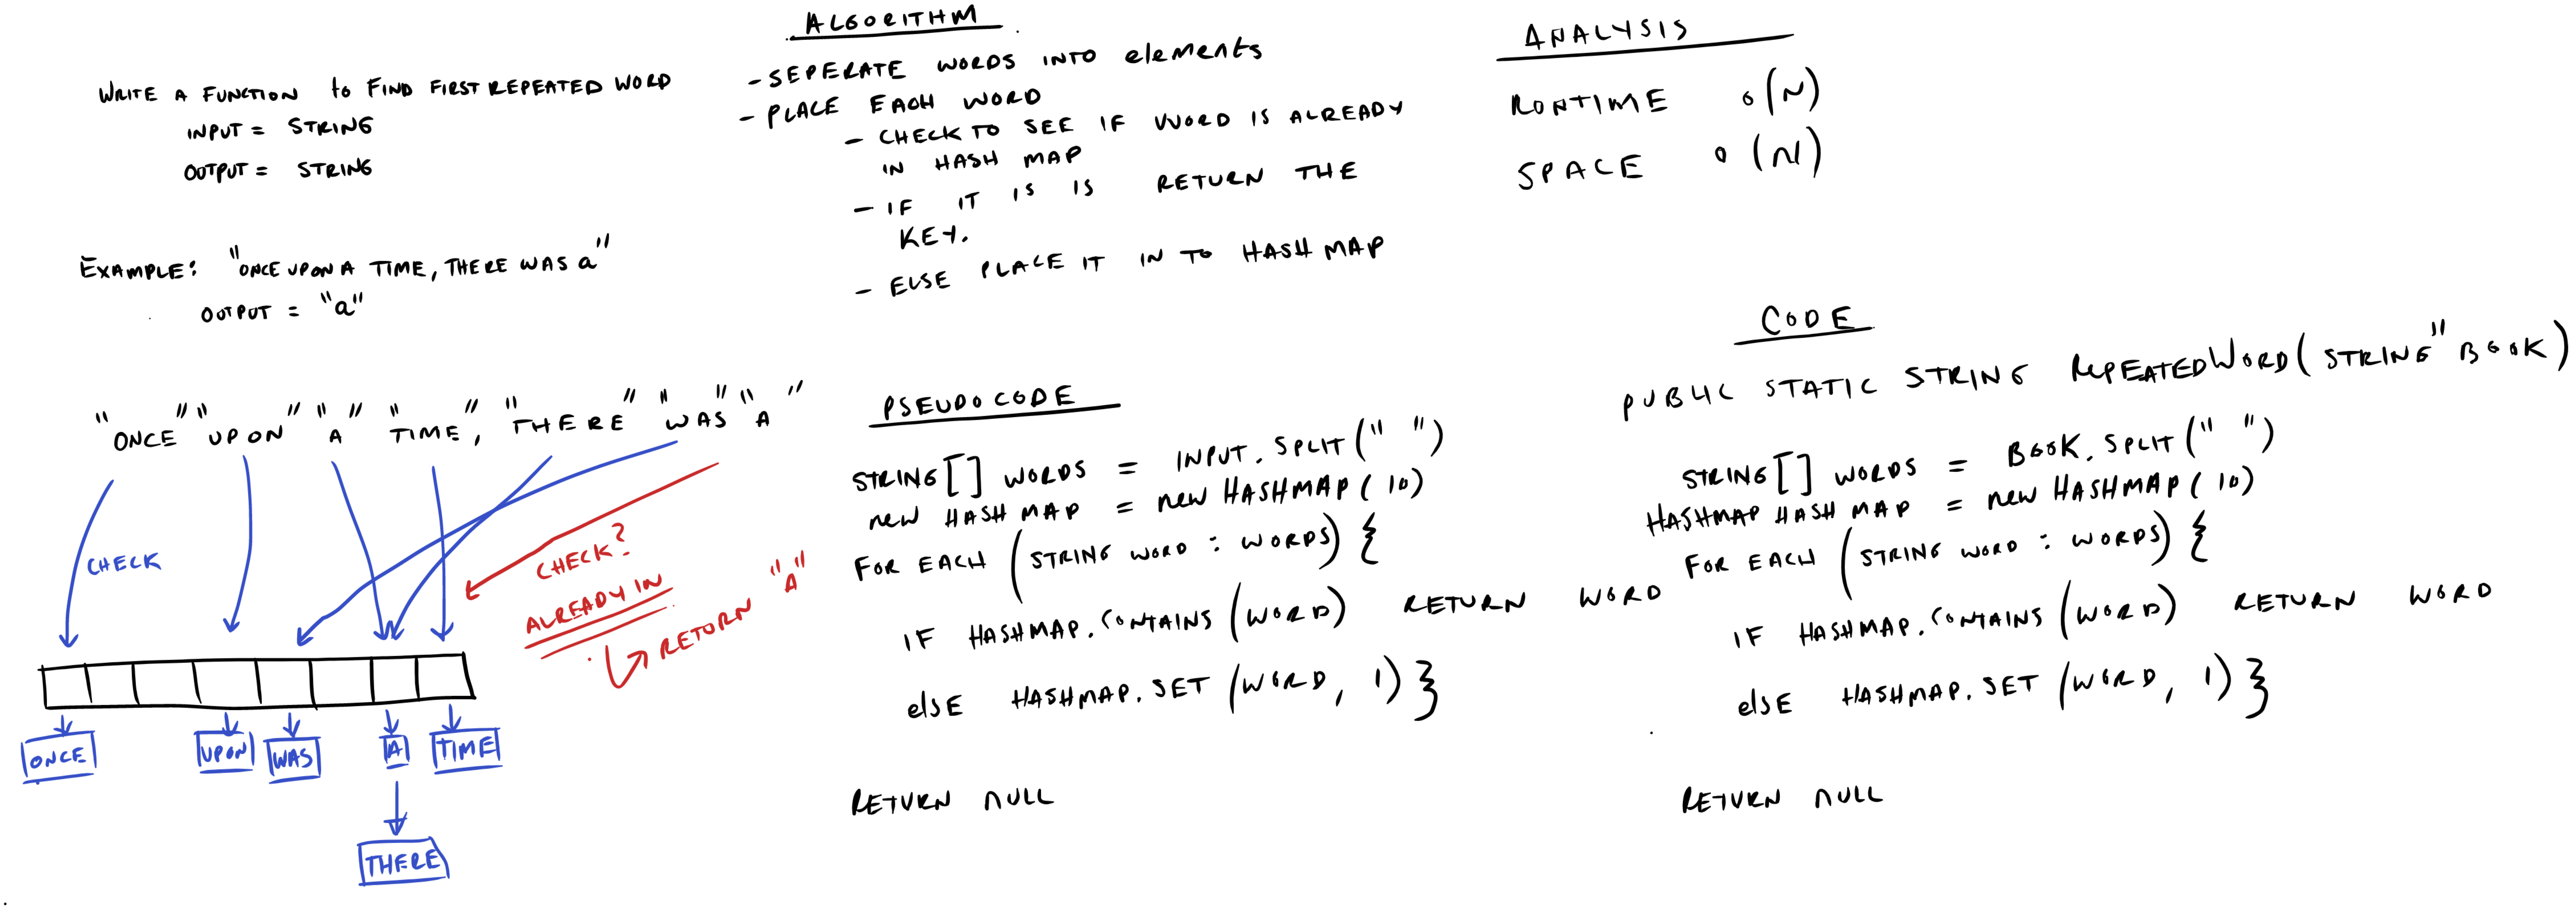 WRITE A FUNCTION to FIND FIRST REPEATED WORD
INPUT = STRING
OUTPUT = STRING
EXAMPLE: "ONCE UPON A TIME, THERE WAS a"
OUTPUT = "a"
"ONCE" "UPON" "A" "TIME," "THERE" "WAS" "A"
CHECK
CHECK?
ALREADY IN
RETURN "A"
ONCE
UPON
WAS
A
TIME
THERE
ALGORITHM
- SEPERATE WORDS INTO elements
- PLACE EACH WORD
- CHECK TO SEE IF WORD IS ALREADY
IN HASH MAP
- IF IT IS IS RETURN THE
KEY.
- ELSE PLACE IT IN TO HASH MAP
PSEUDO CODE
STRING[] WORDS = INPUT.SPLIT(" ")
new HASH MAP = new HASHMAP(10)
FOR EACH (STRING WORD : WORDS) {
IF HASHMAP.CONTAINS (WORD) RETURN WORD
elsE HASHMAP.SET (WORD, 1) }
RETURN NULL
ANALYSIS
RUNTIME O(N)
SPACE O(N)
CODE
PUBLIC STATIC STRING REPEATEDWORD(STRING" BOOK)
STRING[] WORDS = BOOK.SPLIT(" ")
HASHMAP HASH MAP = new HASHMAP(10)
FOR EACH (STRING WORD : WORDS) {
IF HASHMAP.CONTAINS (WORD) RETURN WORD
elsE HASHMAP.SET (WORD, 1) }
RETURN NULL